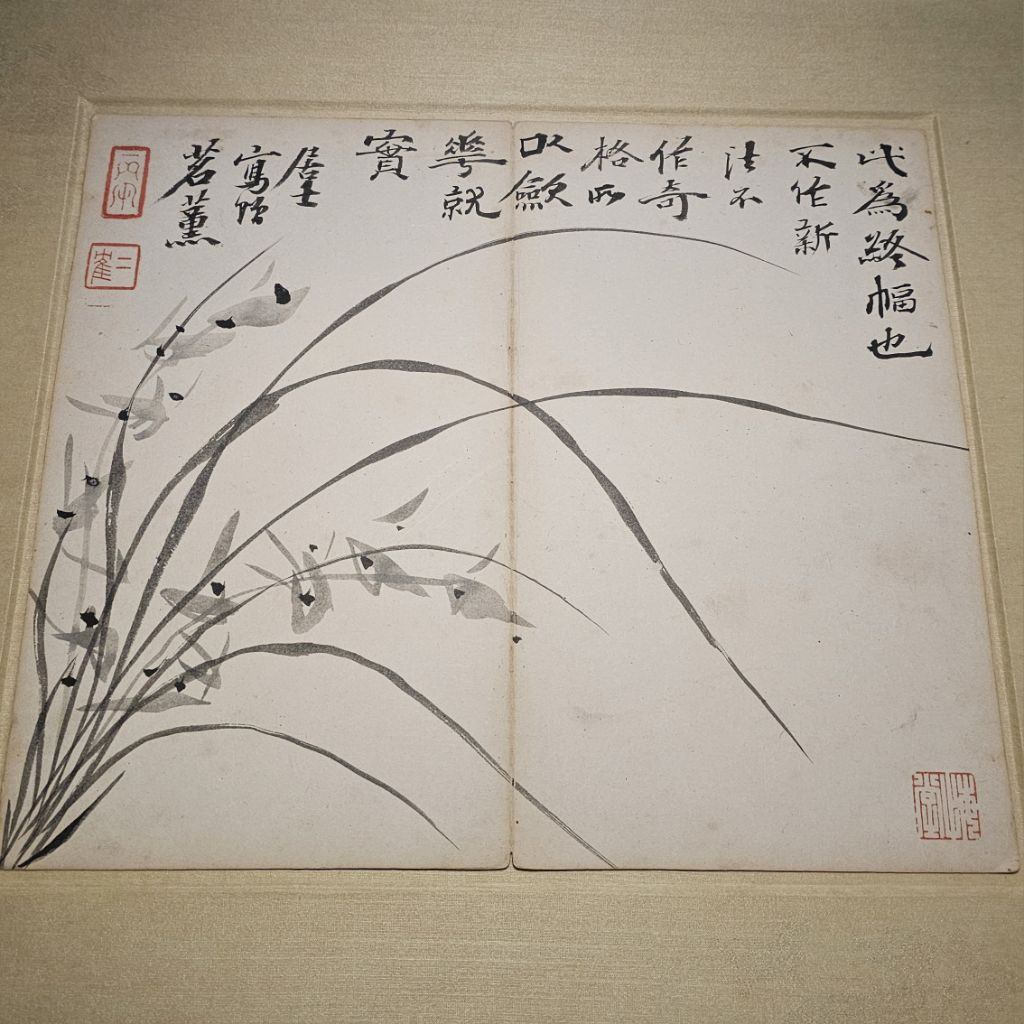 此為終幅也
不作新
法不
作奇
格所
以斂
華就
實
居士
寫贈
茗薰